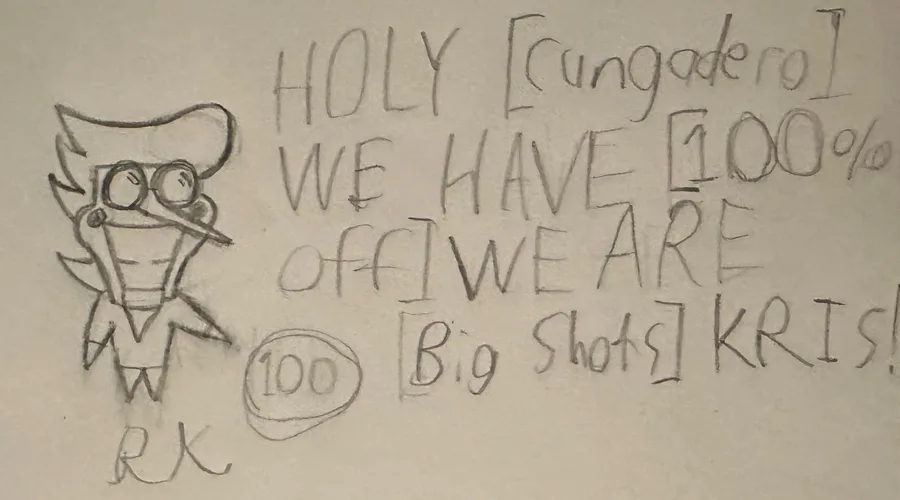 HOLY [Cungadero]
WE HAVE [100%
off] WE ARE
[Big Shots] KRIS!
100
RK